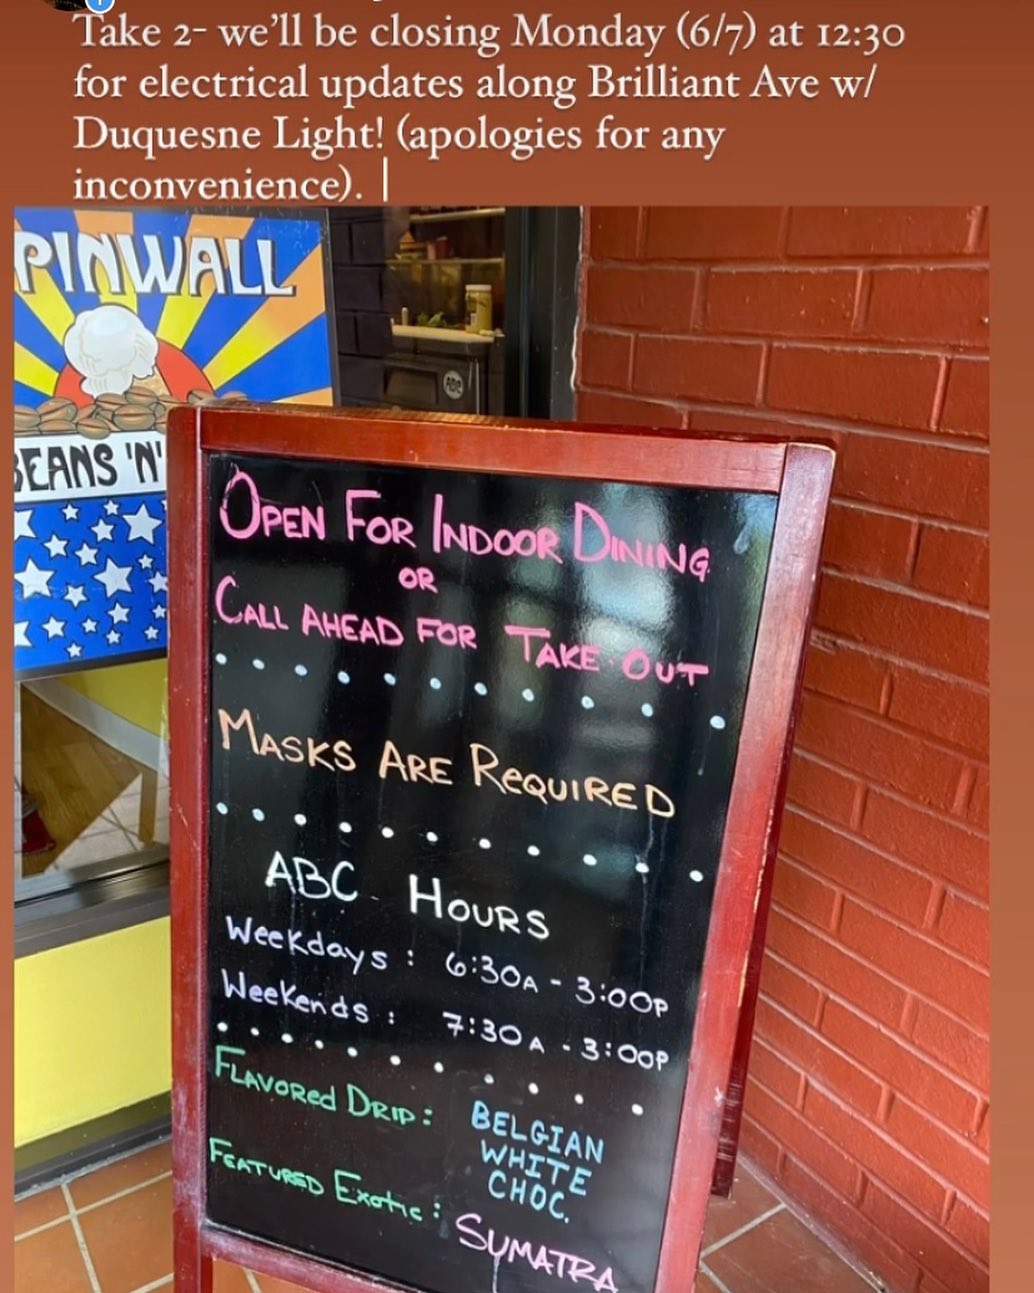 Take 2- we'll be closing Monday (6/7) at 12:30
for electrical updates along Brilliant Ave w/
Duquesne Light! (apologies for any
inconvenience).
PINWALL
BEANS 'N'
ABC
OPEN FOR INDOOR DINING
OR
CALL AHEAD FOR TAKE-OUT
MASKS ARE REQUIRED
ABC HOURS
Weekdays : 6:30A - 3:00P
Weekends : 7:30A - 3:00P
FLAVORED DRIP : BELGIAN
WHITE
CHOC.
FEATURED Exotic : SUMATRA